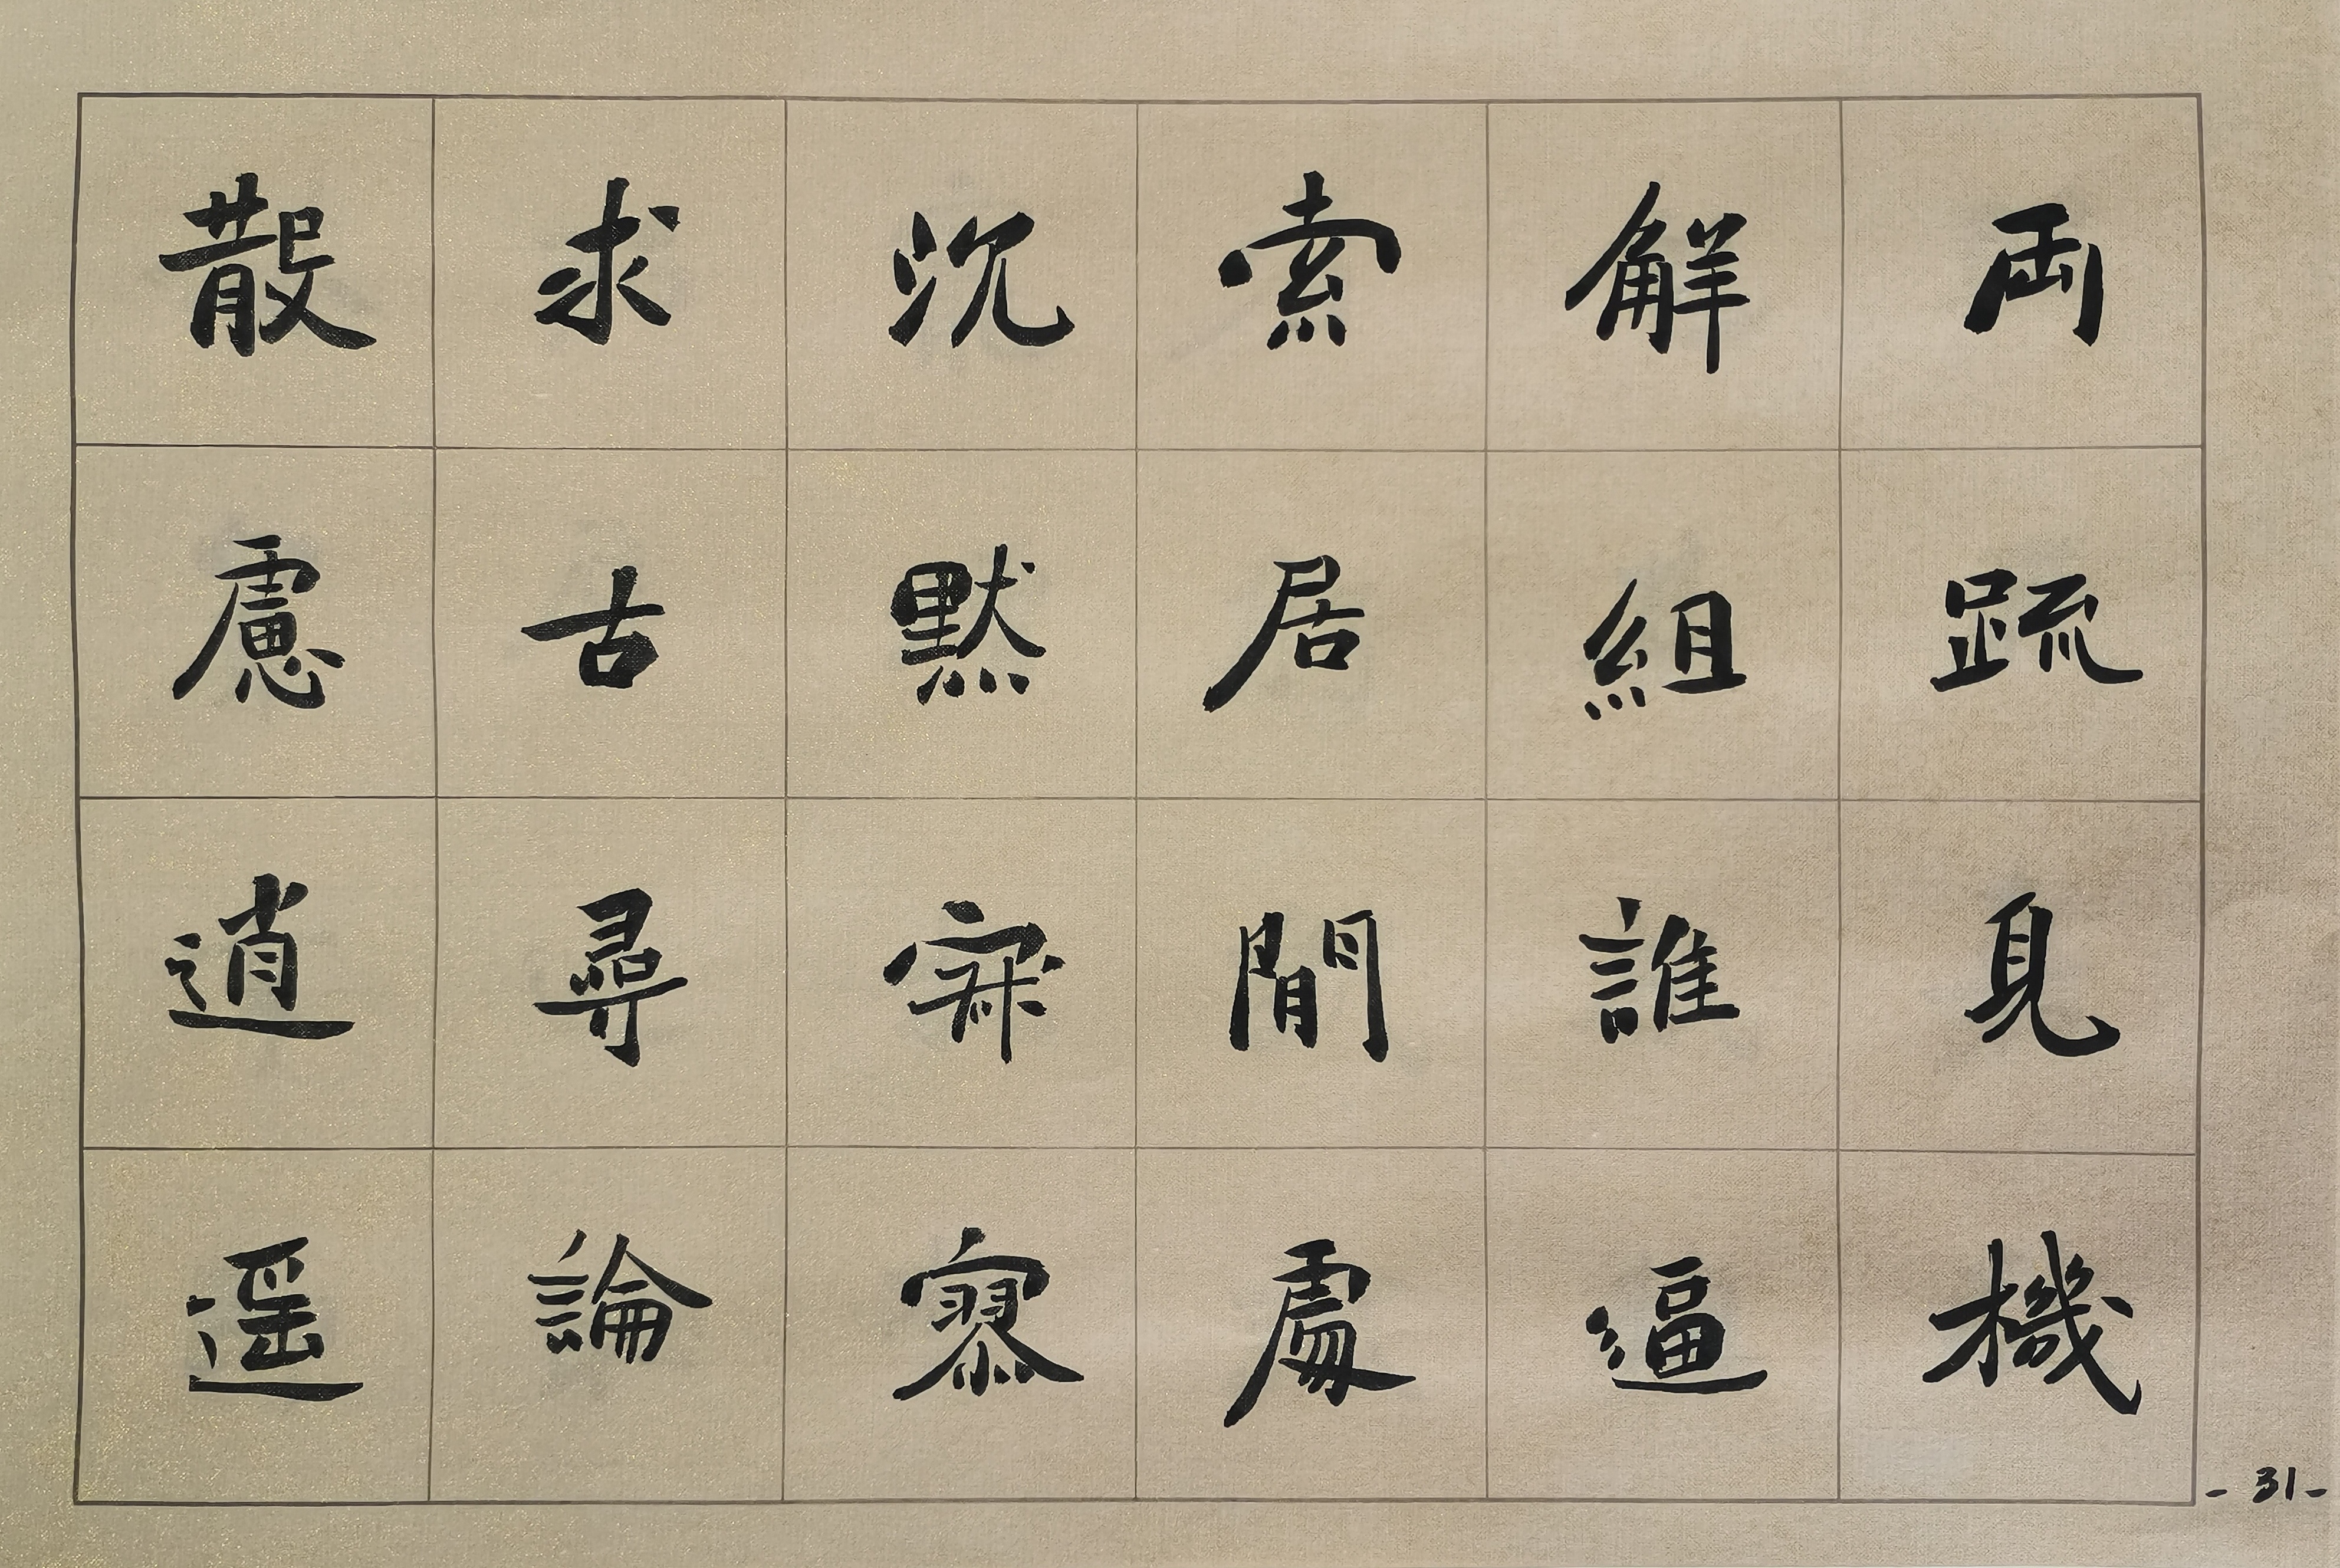 両疏見機
解組誰逼
索居閒處
沉默寂寥
求古尋論
散慮逍遥
- 31 -